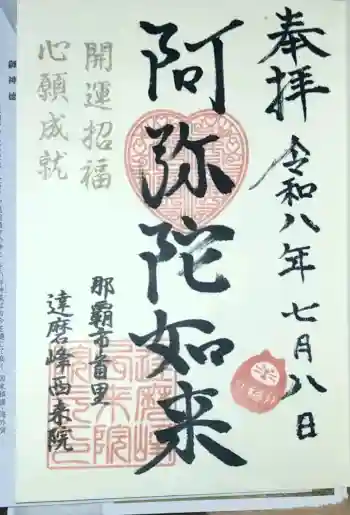 奉拝 令和八年七月八日
阿弥陀如来
開運招福
心願成就
那覇市首里
達磨峰西来院
御神徳